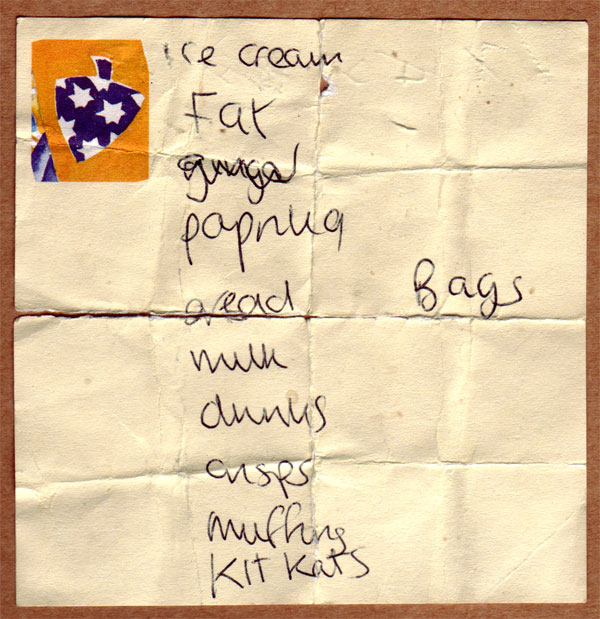 ice cream
Fat
ginger
paprika
Bags
milk
drinks
crisps
muffins
KIT Kats